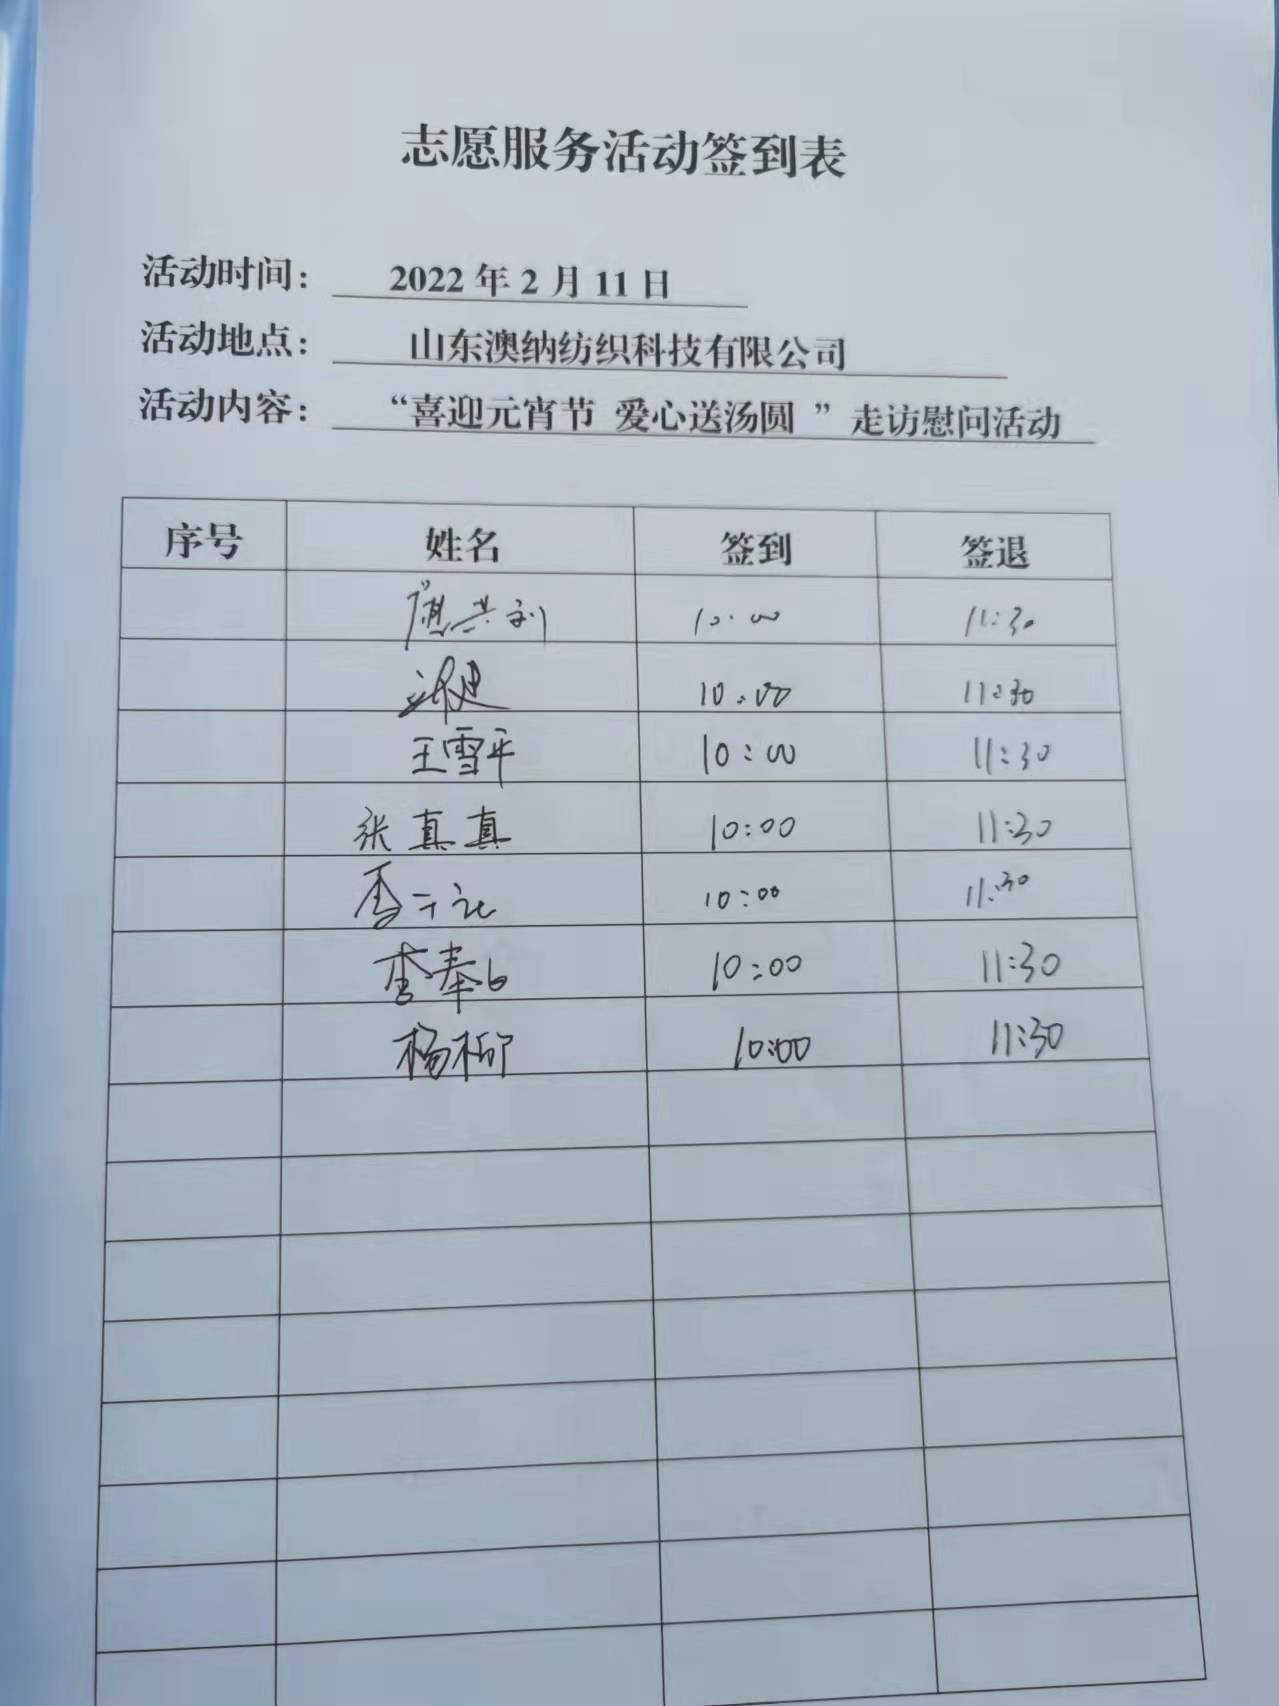 志愿服务活动签到表
活动时间： 2022 年 2 月 11 日
活动地点： 山东澳纳纺织科技有限公司
活动内容： “喜迎元宵节 爱心送汤圆 ” 走访慰问活动
序号 姓名 签到 签退
10:00 11:30
10:00 11:30
王雪平 10:00 11:30
张真真 10:00 11:30
10:00 11:30
10:00 11:30
杨柳 10:00 11:30